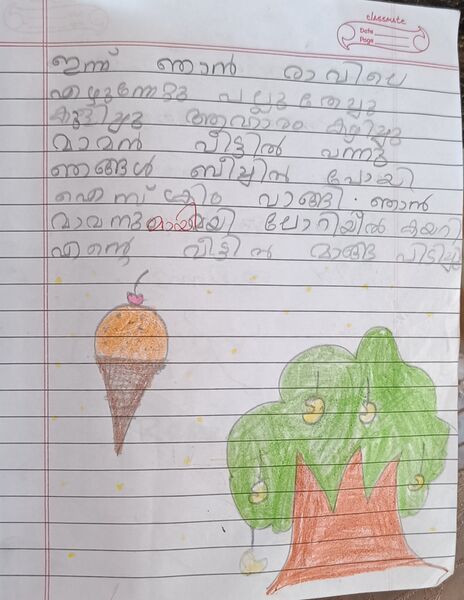 classmate
Date
Page
ഇന്ന് ഞാൻ രാവിലെ
എഴുന്നേറ്റു പല്ലു തേച്ചു
കുളിച്ചു ആഹാരം കഴിച്ചു
മാമൻ വീട്ടിൽ വന്നു
ഞങ്ങൾ ബീച്ചിൽ പോയി
ഐസ് ക്രീം വാങ്ങി. ഞാൻ
മാമനുമായി ലോറിയിൽ കയറി
എന്റെ വീട്ടിൽ മാങ്ങ പിടിച്ചു